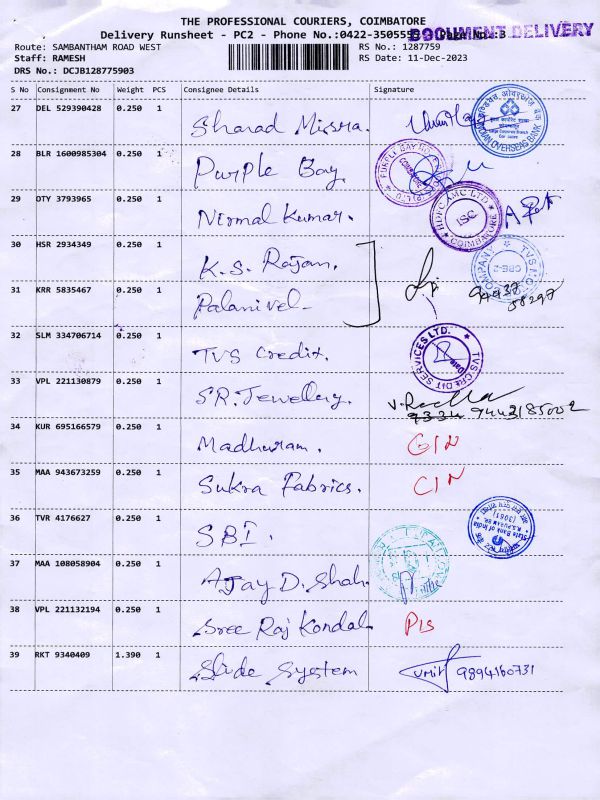 THE PROFESSIONAL COURIERS, COIMBATORE
Delivery Runsheet - PC2 - Phone No.:0422-3505555 Page No.:3
DOCUMENT DELIVERY
Route: SAMBANTHAM ROAD WEST RS No.: 1287759
Staff: RAMESH RS Date: 11-Dec-2023
DRS No.: DCJB128775903
S No Consignment No Weight PCS Consignee Details Signature
27 DEL 529390428 0.250 1 Sharad Misra.
INDIAN OVERSEAS BANK
28 BLR 1600985304 0.250 1 Purple Bay.
PURPLE BAY
29 DTY 3793965 0.250 1 Nirmal Kumar.
HDFC AMC LTD ISC COIMBATORE
30 HSR 2934349 0.250 1 K.S. Rajan.
94437
31 KRR 5835467 0.250 1 Palanivel
58297
32 SLM 334706714 0.250 1 TVS Credit.
TVS CREDIT SERVICES LTD.
33 VPL 221130879 0.250 1 S.R. Jewellery. 9443185002
34 KUR 695166579 0.250 1 Madhuram. GIN
35 MAA 943673259 0.250 1 Sukra Fabrics. CIN
36 TVR 4176627 0.250 1 SBI.
State Bank of India
37 MAA 108058904 0.250 1 Ajay D. Shah.
38 VPL 221132194 0.250 1 Sree Raj Kondal PIS
39 RKT 9340409 1.390 1 Slide System 9894160731